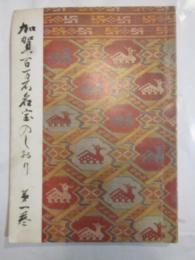 加賀百万石名宝のしおり 第一巻